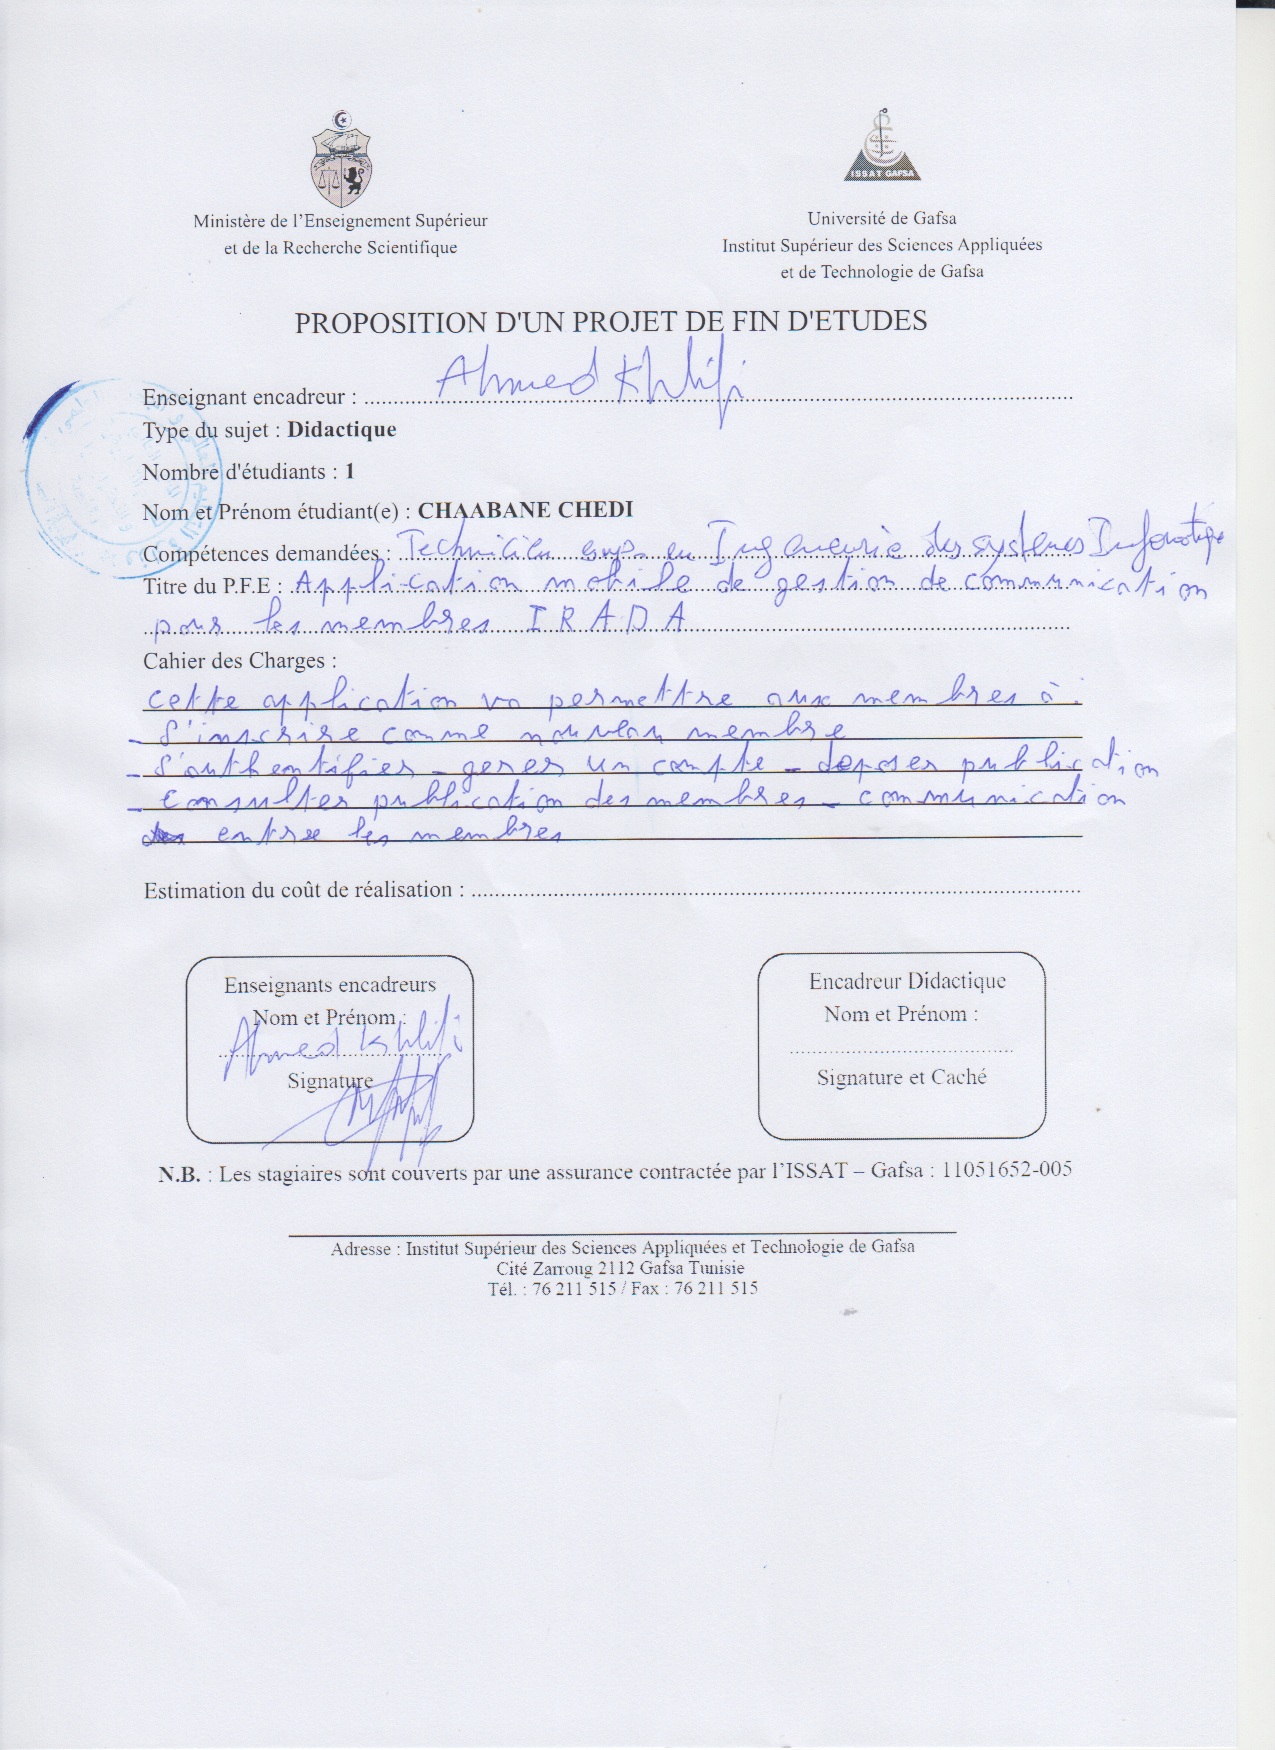 ISSAT GAFSA
Ministère de l'Enseignement Supérieur
et de la Recherche Scientifique
Université de Gafsa
Institut Supérieur des Sciences Appliquées
et de Technologie de Gafsa
PROPOSITION D'UN PROJET DE FIN D'ETUDES
Enseignant encadreur : Ahmed Khlifi
Type du sujet : Didactique
Nombre d'étudiants : 1
Nom et Prénom étudiant(e) : CHAABANE CHEDI
Compétences demandées : Technicien sup. en Ingénieurie des systèmes Informatique
Titre du P.F.E : Application mobile de gestion de communication
pour les membres IRADA
Cahier des Charges :
cette application va permettre aux membres à :
- S'inscrire comme nouveau membre
- S'authentifier - gerer un compte - deposer publication
- Consulter publication des membres - communication
entre les membres
Estimation du coût de réalisation :
Enseignants encadreurs
Nom et Prénom :
Ahmed Khlifi
Signature
Encadreur Didactique
Nom et Prénom :
Signature et Caché
N.B. : Les stagiaires sont couverts par une assurance contractée par l'ISSAT – Gafsa : 11051652-005
Adresse : Institut Supérieur des Sciences Appliquées et Technologie de Gafsa
Cité Zarroug 2112 Gafsa Tunisie
Tél. : 76 211 515 / Fax : 76 211 515